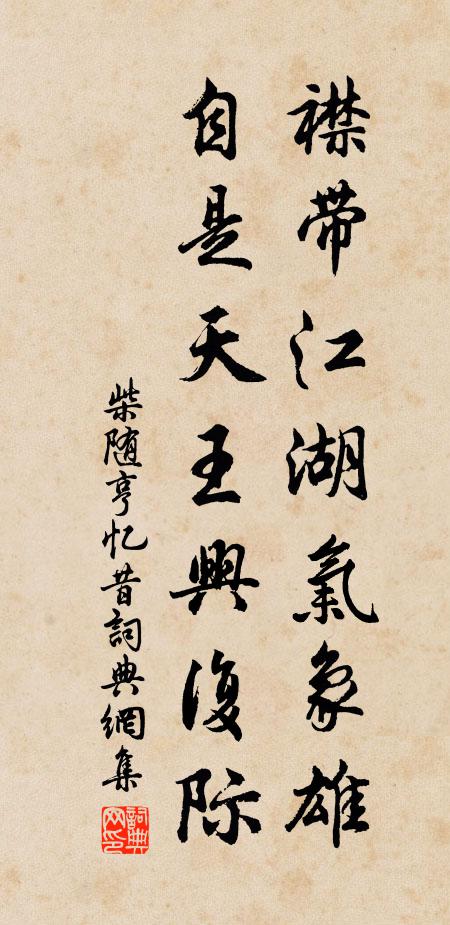 襟帶江湖氣象雄
自是天王興復际
柴随亨忆昔詞典網集
詞典网印